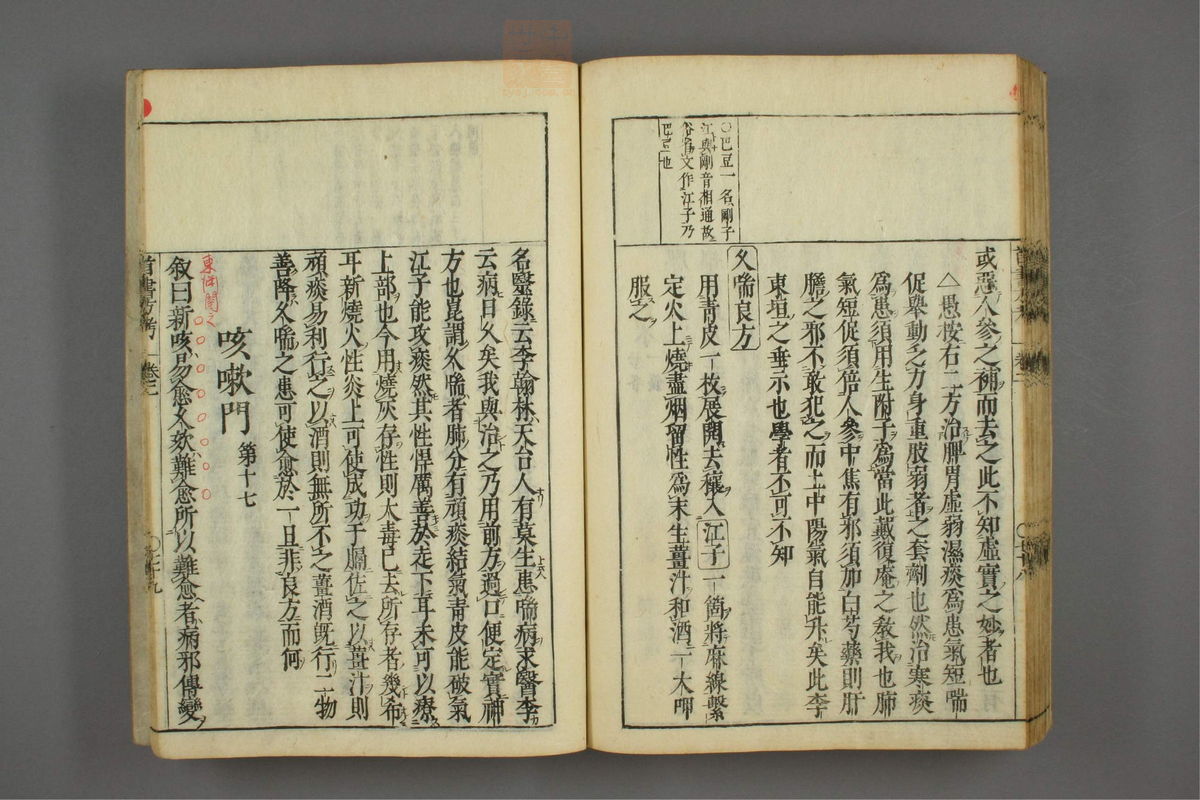 〇巴豆一名剛子
江與剛音相通故
俗省文作江子乃
巴豆也
或惡人參之補而去之此不知虛實之妙者也
△愚按右二方治脾胃虛弱濕痰爲患氣短喘
促舉動乏力身重肢弱者之套劑也然治寒痰
爲患須用生附子爲當此戴復庵之敎我也肺
氣短促須倍人參中焦有邪須加白芍藥則肝
膽之邪不敢犯之而上中陽氣自能升矣此李
東垣之垂示也學者不可不知
久喘良方
用青皮一枚展開去穰入江子一箇將麻線繫
定火上燒盡烟留性爲末生薑汁和酒一大呷
服之
名醫錄云李翰林天台人有莫生患喘病求醫李
云病日久矣我與治之乃用前方過口便定實神
方也崑謂久喘者肺分有頑痰結氣青皮能破氣
江子能攻痰然其性悍厲善於走下耳未可以療
上部也今用燒灰存性則大毒已去所存者幾希
耳新燒火性炎上可使成功于膈佐之以薑汁則
頑痰易利行之以酒則無所不之薑酒既行二物
善降久喘之患可使愈於一旦非良方而何
咳嗽門 第十七
叙曰新咳易愈久欬難愈所以難愈者病邪傳變
首書方考 卷二